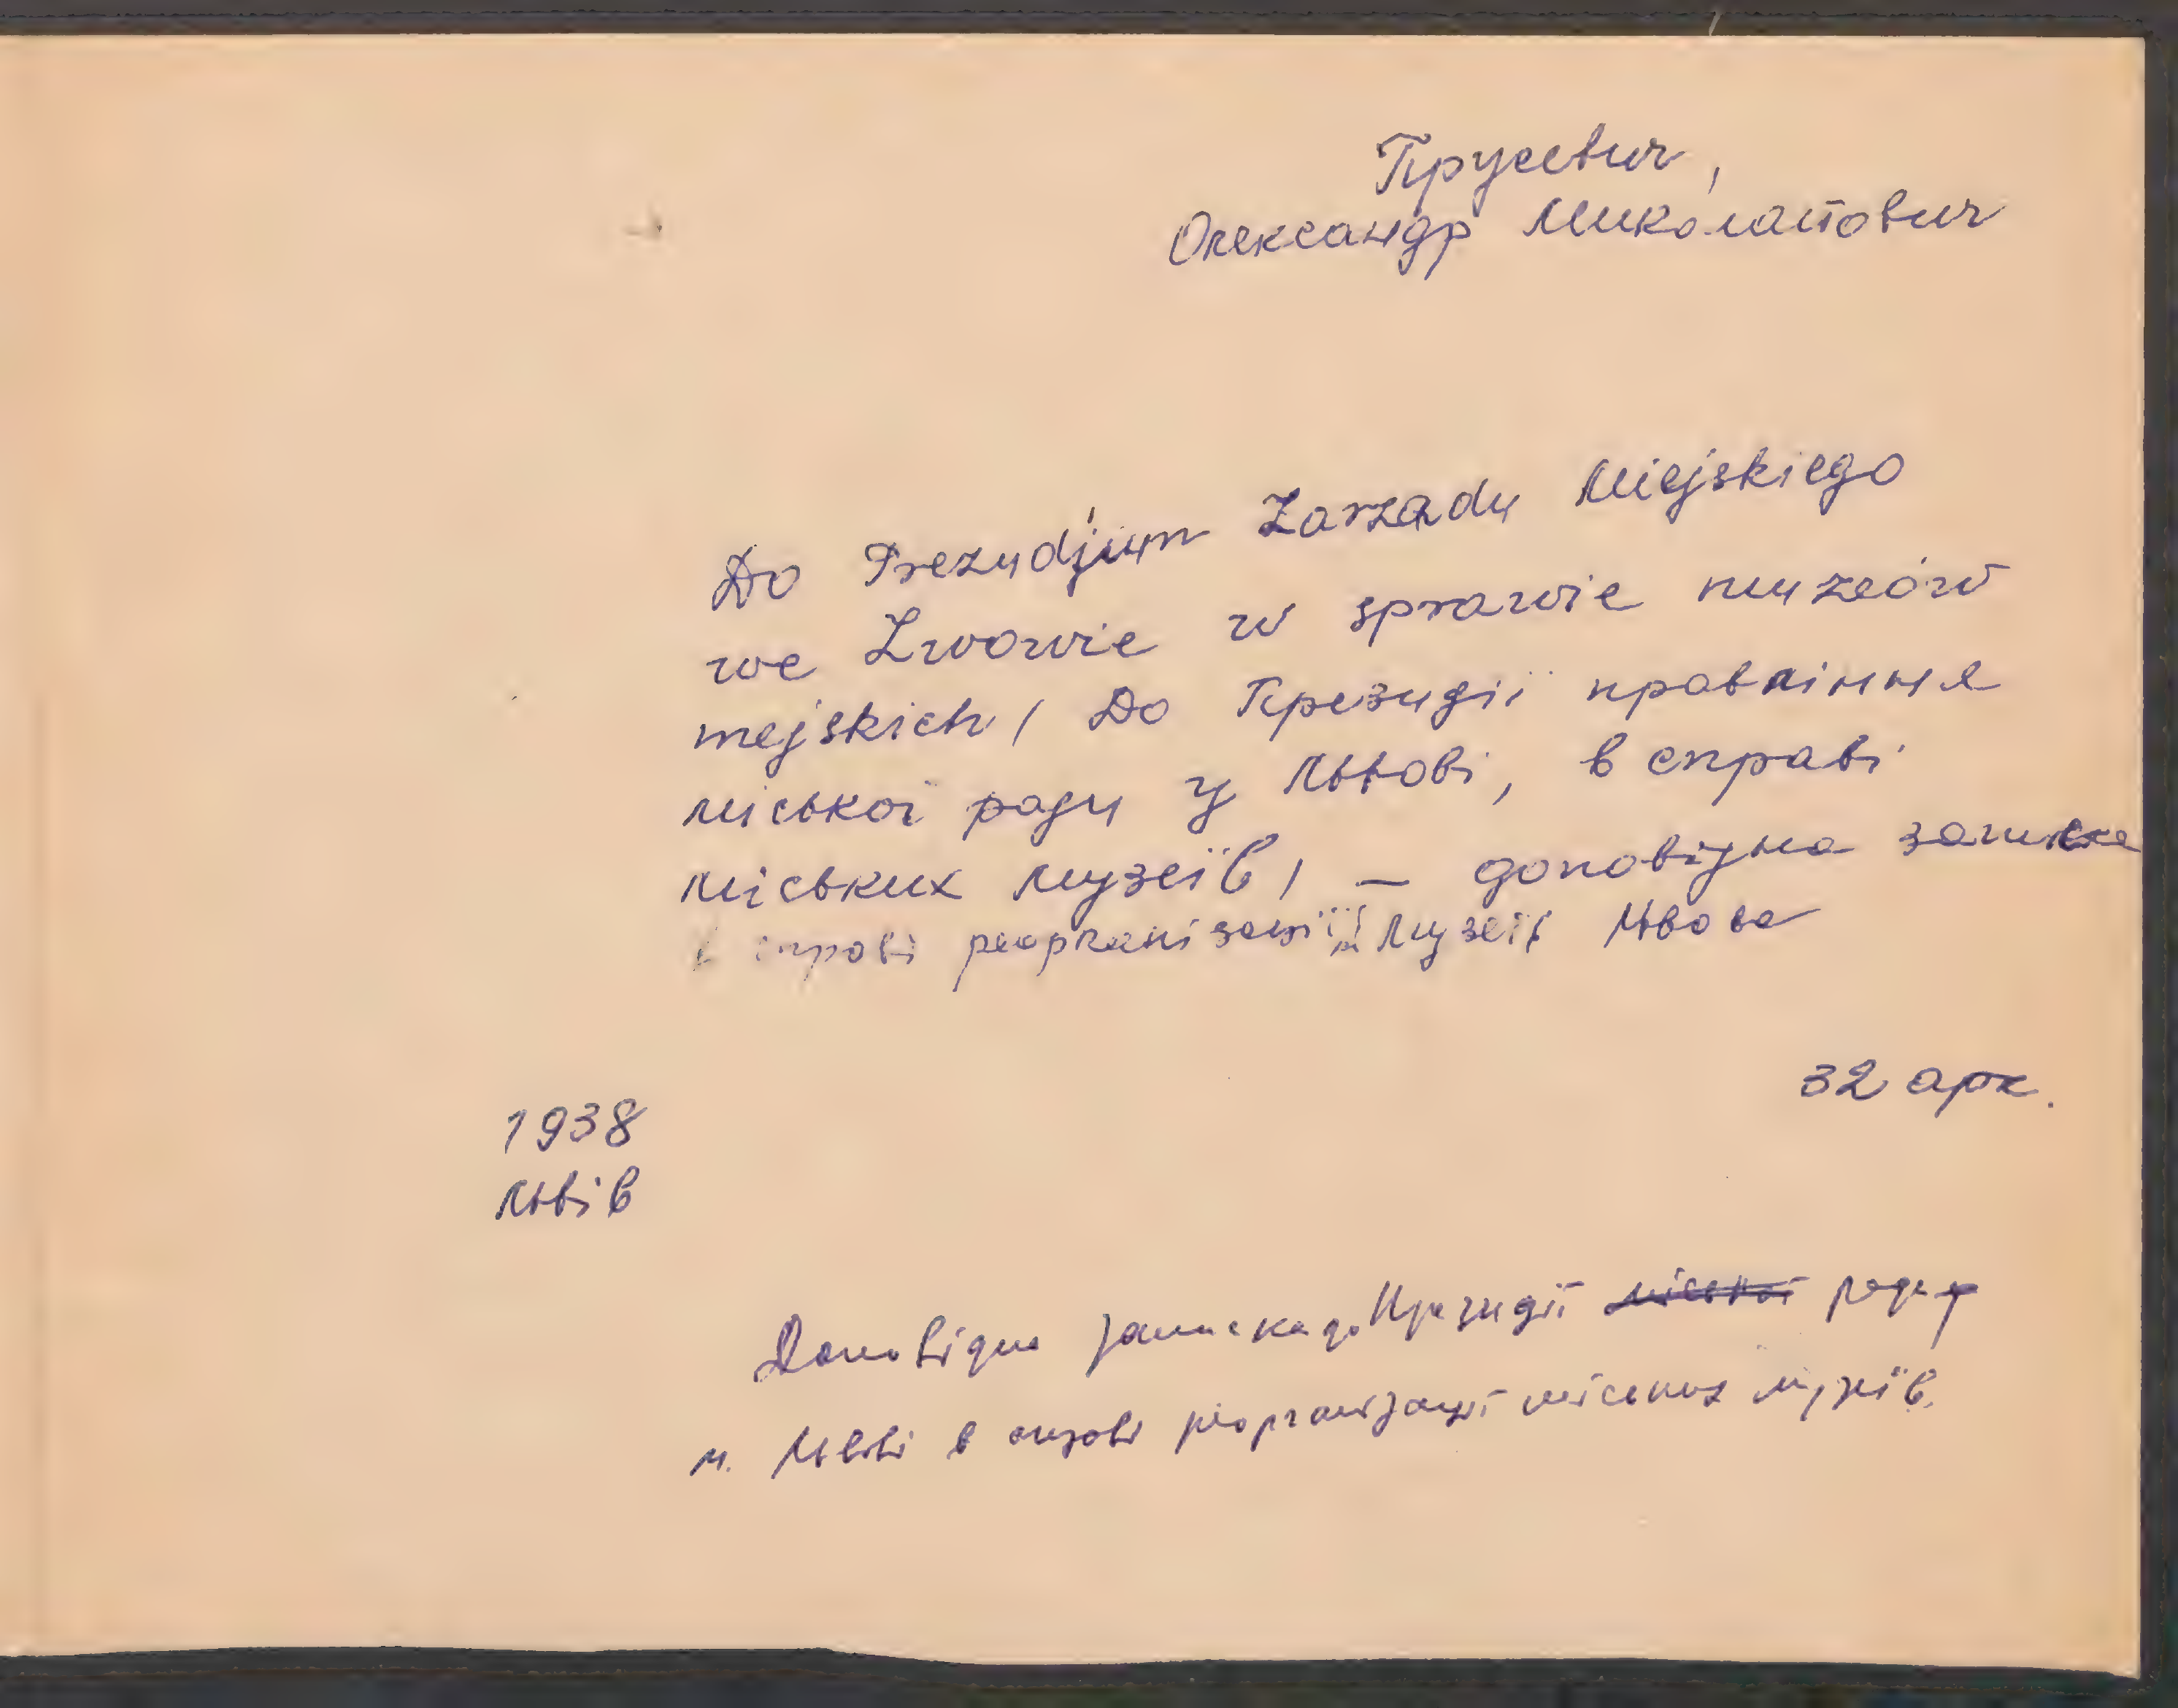 Прусевич,
Олександр Миколайович
Do Prezydjum Zarządu Miejskiego
we Lwowie w sprawie muzeów
mejskich / До Президії правління
міської ради у Львові, в справі
міських музеїв / – доповідна записка
в справі реорганізації музеїв Львова
32 арк.
1938
Львів
Доповідна записка до Президії міської ради
м. Львові в справі реорганізації міських музеїв.